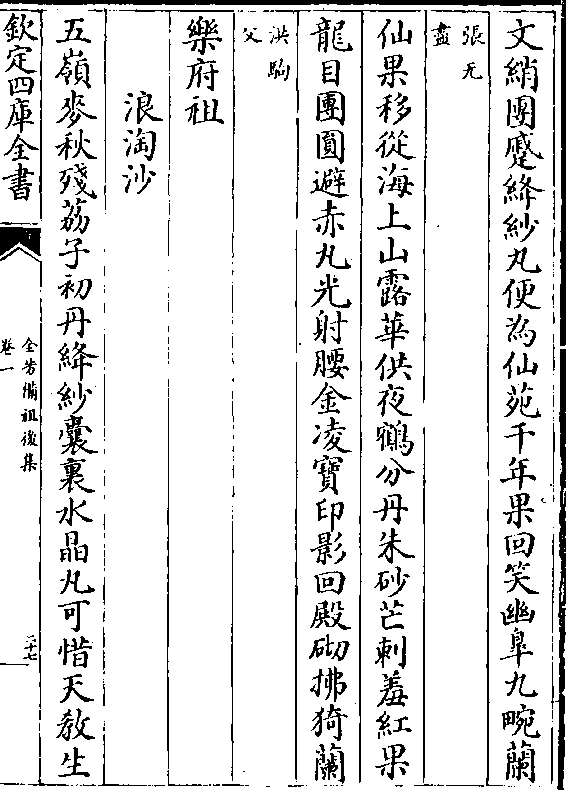 文綃團蹙絳紗丸便為仙苑千年果回笑幽臯九畹蘭
張无
盡
仙果移從海上山露華供夜鶴分丹朱砂芒刺羞紅果
龍目團圓避赤丸光射腰金凌寶印影回殿砌拂猗蘭
洪駒
父
樂府祖
浪淘沙
五嶺麥秋殘荔子初丹絳紗囊裏水晶丸可惜天教生
欽定四庫全書
全芳備祖後集
卷一
二十七